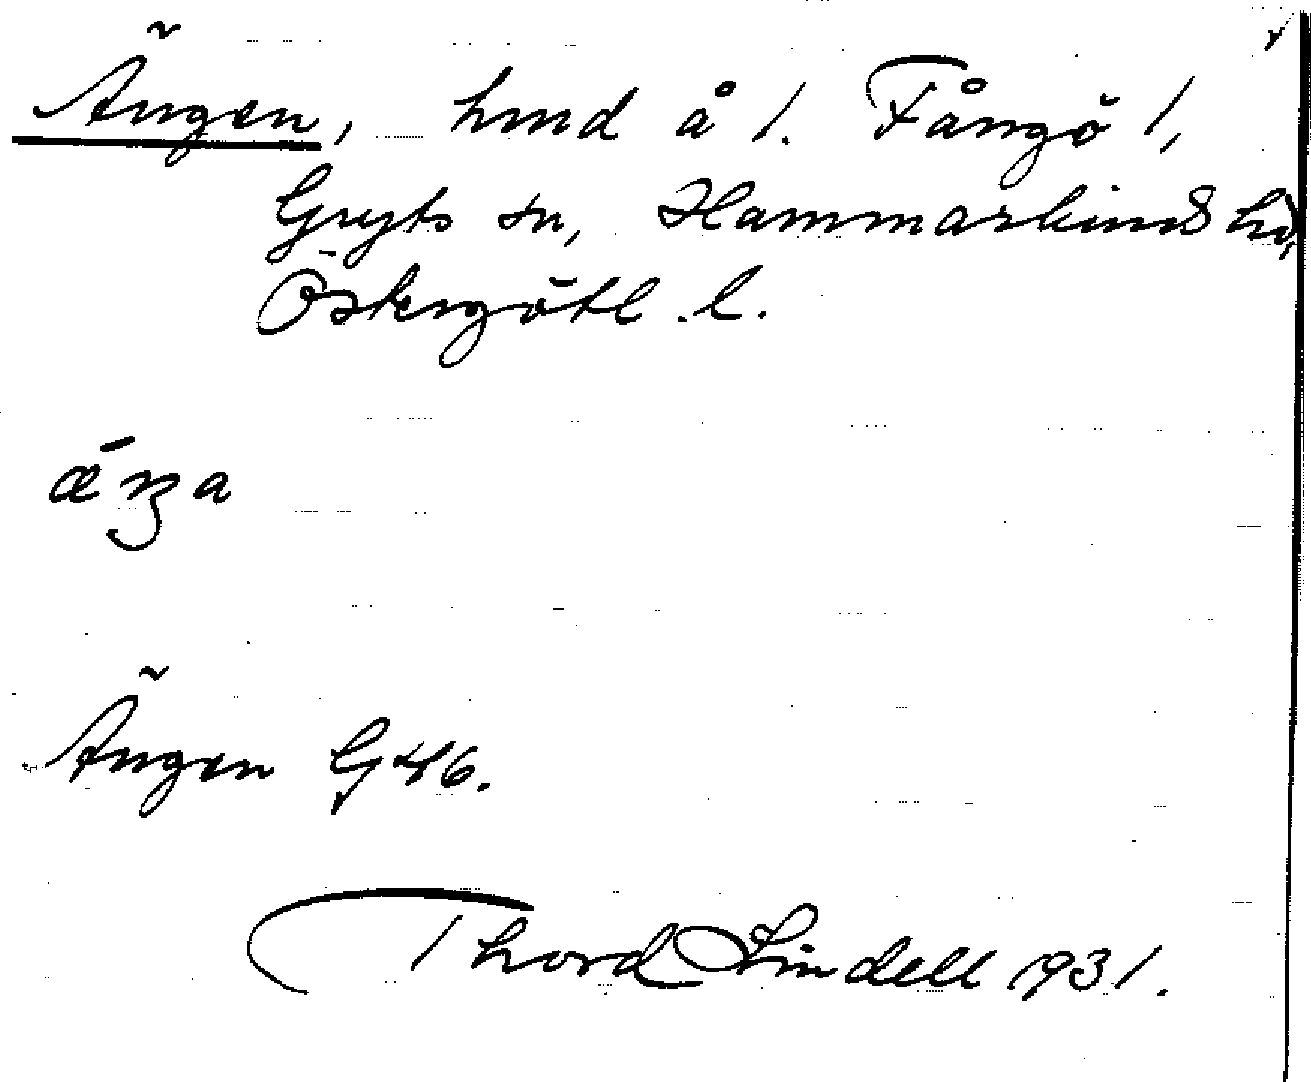 Ängen, hmd å 1. Fångö 1,
Gryts sn, Hammarkinds hd,
Östergötl. l.
Ängen G46.
Thord Lindell 1931.